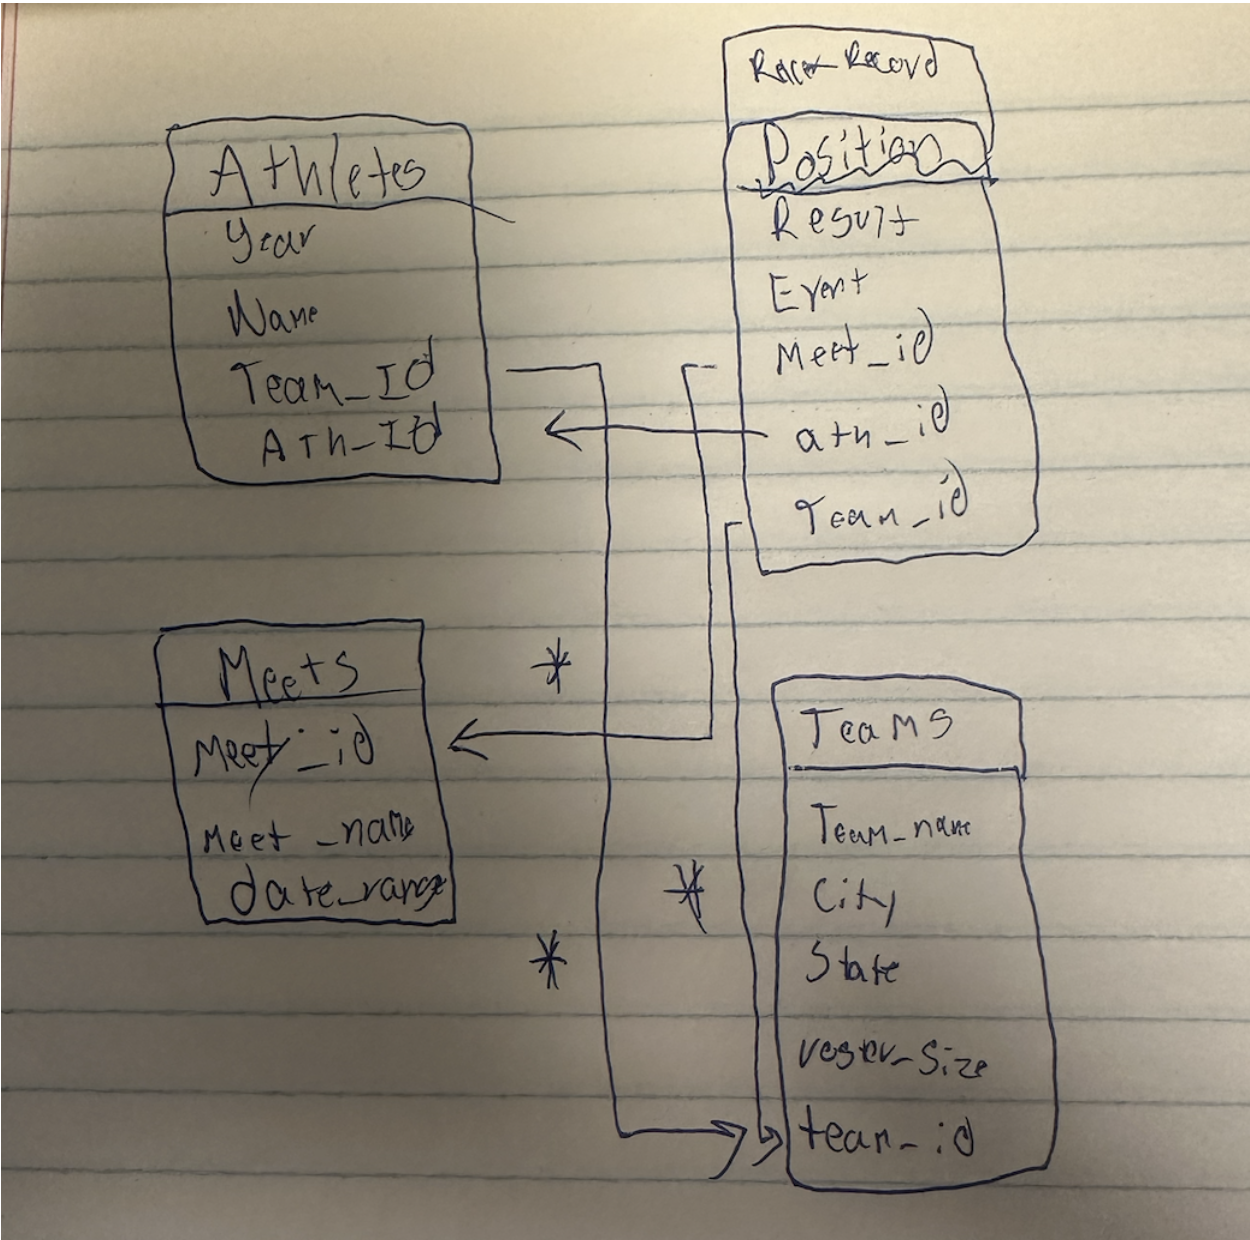 Athletes
Year
Name
Team_Id
Ath_Id
Record
Position
Result
Event
Meet_id
ath_id
Team_id
Meets
Meet_id
Meet_name
date_range
*
*
*
Teams
Team_name
City
State
roster_size
team_id